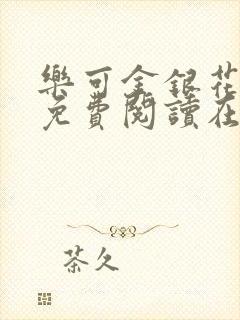 樂可金銀花
免費閱讀在
茶久